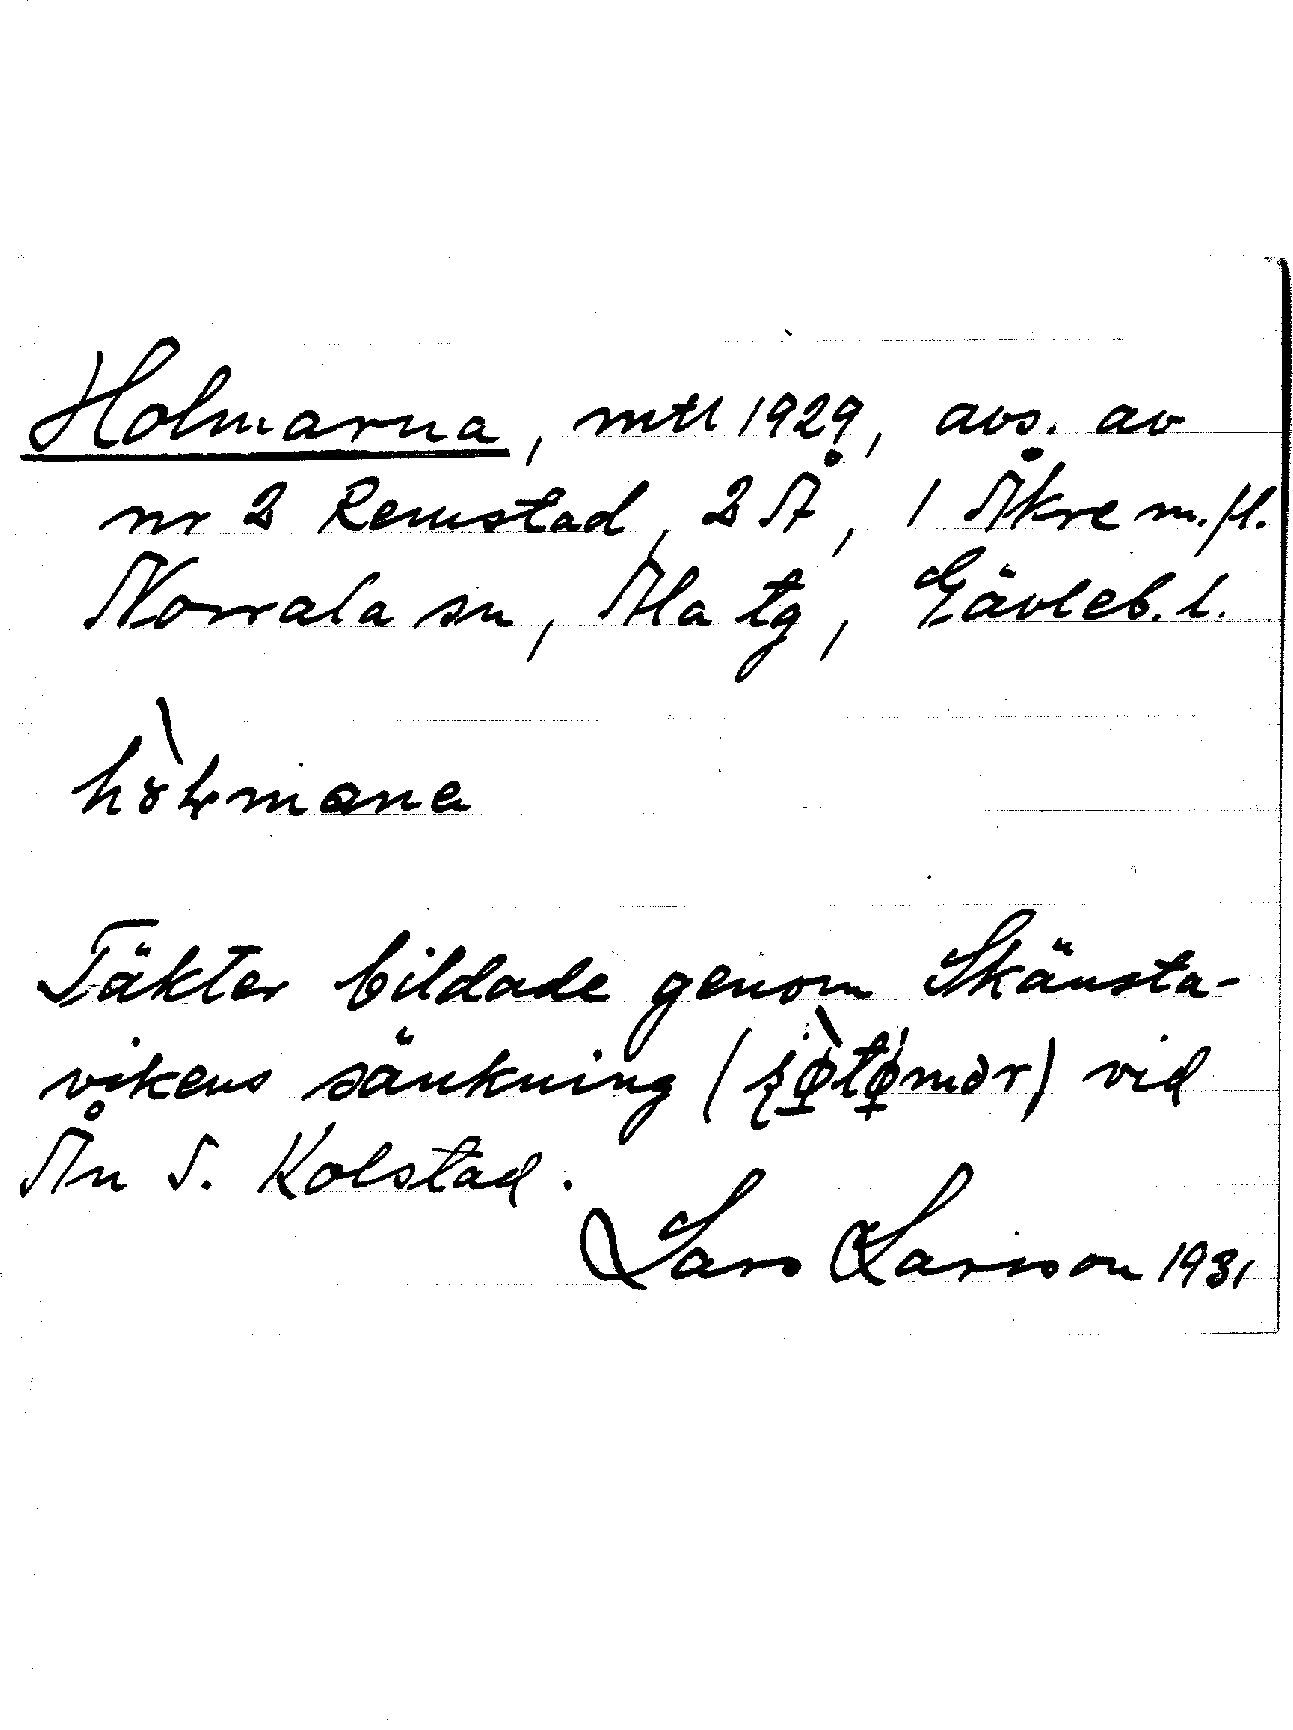 Holmarna, mtl 1929, avs. av
nr 2 Remstad, 2 Å, 1 Åkre m.fl.
Norrala sn, Ala tg, Gävleb. l.
Täkter bildade genom Skänsta-
vikens sänkning ( ) vid
Ån S. Kolstad.
Lars Larsson 1931